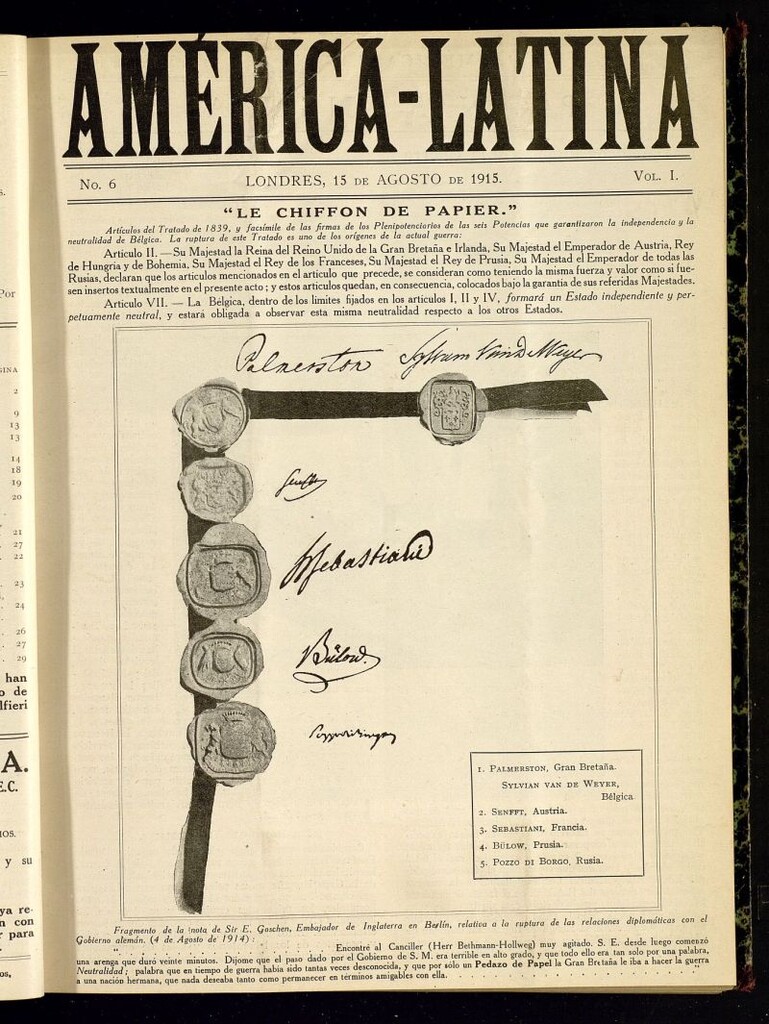 AMÉRICA-LATINA
No. 6
LONDRES, 15 DE AGOSTO DE 1915.
VOL. I.
"LE CHIFFON DE PAPIER."
Artículos del Tratado de 1839, y facsimile de las firmas de los Plenipotenciarios de las seis Potencias que garantizaron la independencia y la
neutralidad de Bélgica. La ruptura de este Tratado es uno de los orígenes de la actual guerra:
Artículo II.—Su Majestad la Reina del Reino Unido de la Gran Bretaña e Irlanda, Su Majestad el Emperador de Austria, Rey
de Hungria y de Bohemia, Su Majestad el Rey de los Franceses, Su Majestad el Rey de Prusia, Su Majestad el Emperador de todas las
Rusias, declaran que los artículos mencionados en el articulo que precede, se consideran como teniendo la misma fuerza y valor como si fue-
sen insertos textualmente en el presente acto; y estos articulos quedan, en consecuencia, colocados bajo la garantia de sus referidas Majestades.
Articulo VII. — La Bélgica, dentro de los limites fijados en los articulos I, II y IV, formará un Estado independiente y per-
petuamente neutral, y estará obligada a observar esta misma neutralidad respecto a los otros Estados.
Palmerston
Sylvain Van de Weyer
Senfft
Sebastiani
Bülow
1. PALMERSTON, Gran Bretaña.
SYLVIAN VAN DE WEYER,
Bélgica
2. SENFFT, Austria.
3. SEBASTIANI, Francia.
4. BÜLOW, Prusia.
5. POZZO DI BORGO, Rusia.
Fragmento de la nota de Sir E. Goschen, Embajador de Inglaterra en Berlín, relativa a la ruptura de las relaciones diplomáticas con el
Gobierno alemán. (4 de Agosto de 1914):
". . . . . . Encontré al Canciller (Herr Bethmann-Hollweg) muy agitado. S. E. desde luego comenzó
una arenga que duró veinte minutos. Díjome que el paso dado por el Gobierno de S. M. era terrible en alto grado, y que todo ello era tan solo por una palabra,
Neutralidad; palabra que en tiempo de guerra había sido tantas veces desconocida, y que por sólo un Pedazo de Papel la Gran Bretaña le iba a hacer la guerra
a una nación hermana, que nada deseaba tanto como permanecer en términos amigables con ella. . . . . . "
Por
GINA
2
9
13
13
14
18
19
20
21
27
22
23
24
26
27
29
han
o de
lfieri
A.
E.C.
y su
ya re-
n con
para